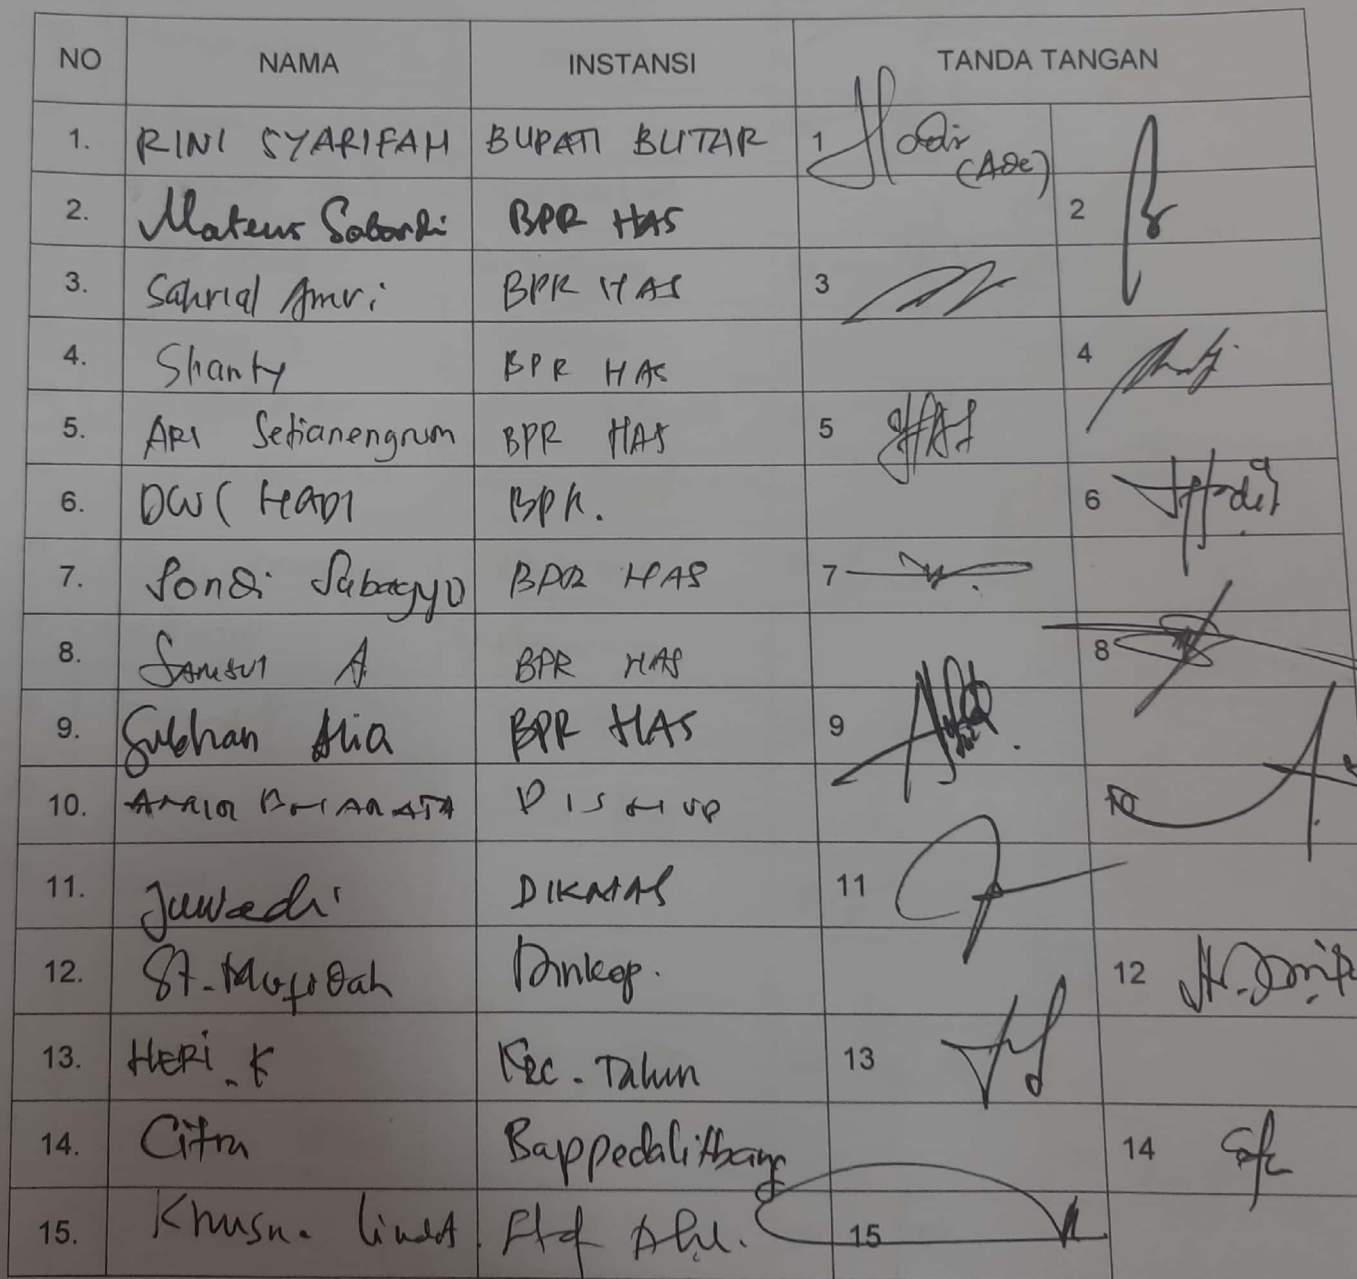 NO NAMA INSTANSI TANDA TANGAN
1. RINI SYARIFAH BUPATI BLITAR 1 Hadir (Ade)
2. Mateus Sabardi BPR HAS 2
3. Sahrial Amri BPR HAS 3
4. Shanty BPR HAS 4
5. ARI Setianengrum BPR HAS 5
6. DWI HADI BPR. 6
7. Sondi Subagyo BPR HAS 7
8. SAMSUL A BPR HAS 8
9. Subhan Alia BPR HAS 9
10. 10
11. Juwadi DIKMAS 11
12. St. Mufidah Dinkop. 12
13. HERI.K Kec. Talun 13
14. Citra Bappedalitbang 14
15. Khusn. 15